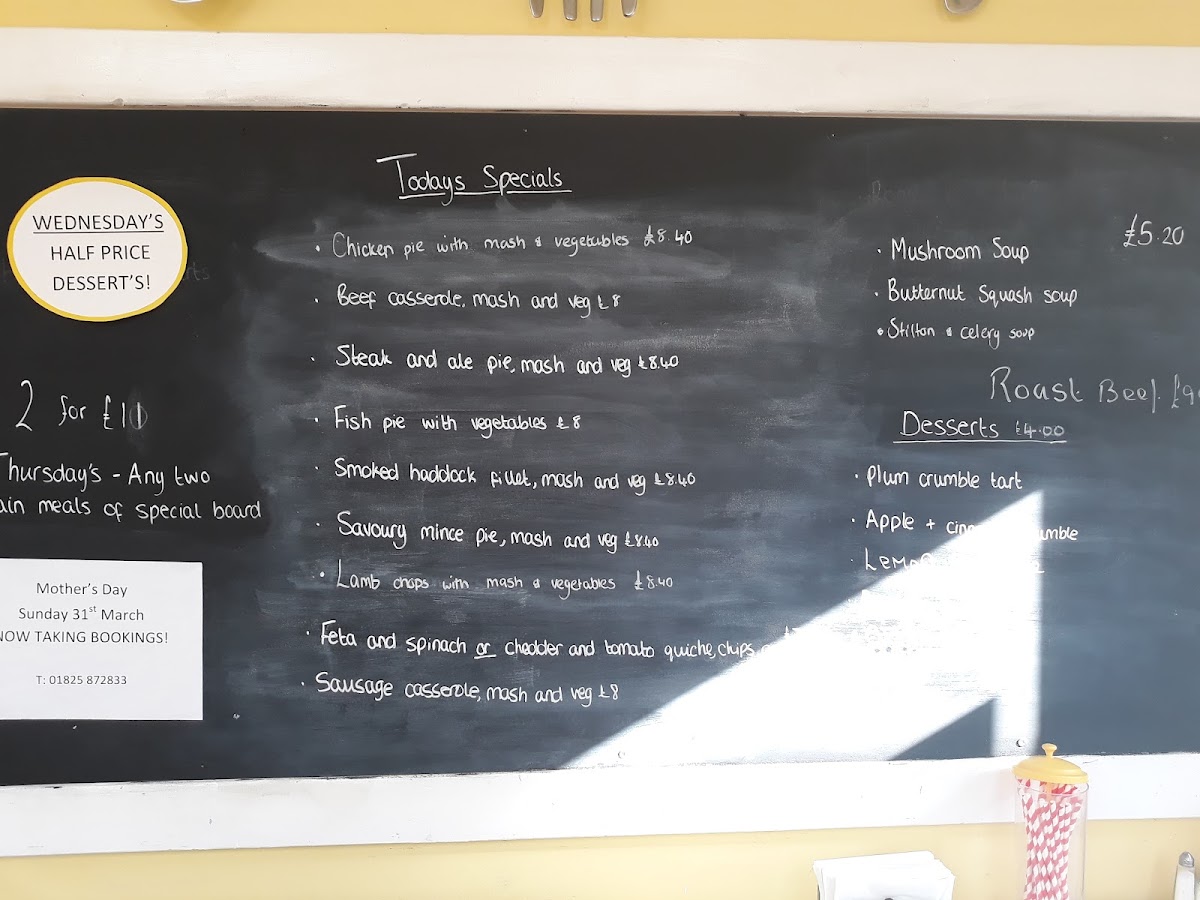 WEDNESDAY'S
HALF PRICE
DESSERT'S!
2 for £10
Thursday's - Any two
ain meals of special board
Mother's Day
Sunday 31st March
NOW TAKING BOOKINGS!
T: 01825 872833
Todays Specials
• Chicken pie with mash & vegetables £8.40
• Beef casserole, mash and veg £8
• Steak and ale pie, mash and veg £8.40
• Fish pie with vegetables £8
• Smoked haddock fillet, mash and veg £8.40
• Savoury mince pie, mash and veg £8.40
• Lamb chops with mash & vegetables £8.40
• Feta and spinach or chedder and tomato quiche, chips
• Sausage casserole, mash and veg £8
• Mushroom Soup £5.20
• Butternut Squash soup
• Stilton & celery soup
Roast Beef
Desserts £4.00
• Plum crumble tart
• Apple +